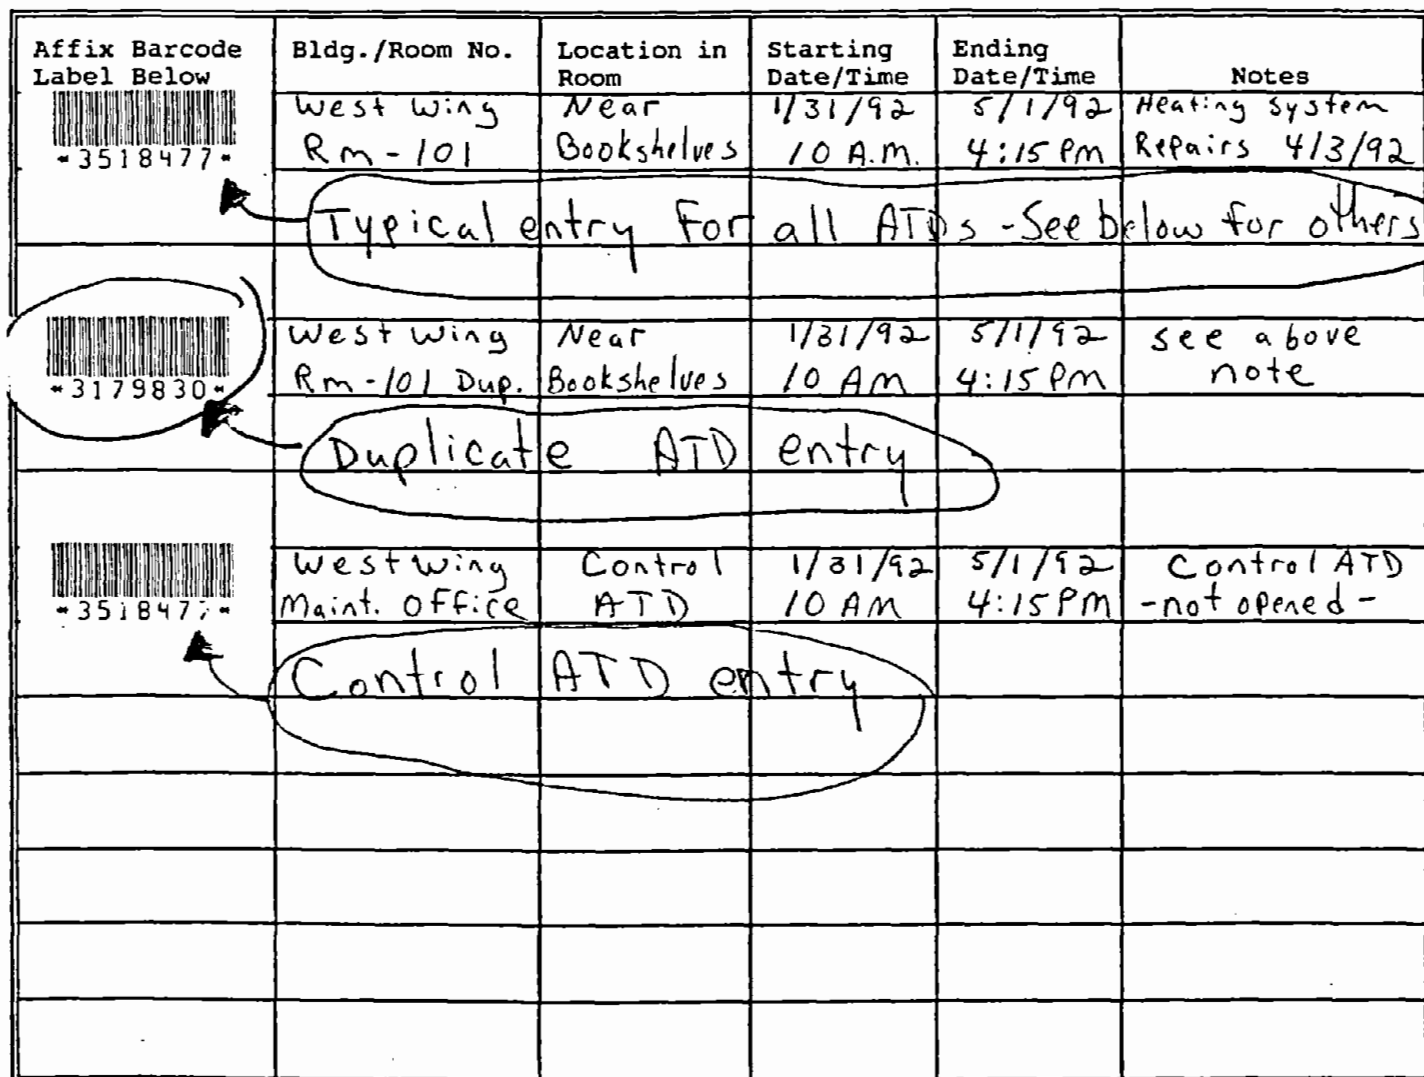 Affix Barcode Label Below | Bldg./Room No. | Location in Room | Starting Date/Time | Ending Date/Time | Notes
*3518477* | West Wing Rm-101 | Near Bookshelves | 1/31/92 10 A.M. | 5/1/92 4:15 PM | Heating System Repairs 4/3/92
Typical entry For all ATDs - See below for others
*3179830* | West Wing Rm-101 Dup. | Near Bookshelves | 1/31/92 10 AM | 5/1/92 4:15 PM | see above note
Duplicate ATD entry
*3518477* | West Wing Maint. Office | Control ATD | 1/31/92 10 AM | 5/1/92 4:15 PM | Control ATD -not opened-
Control ATD entry